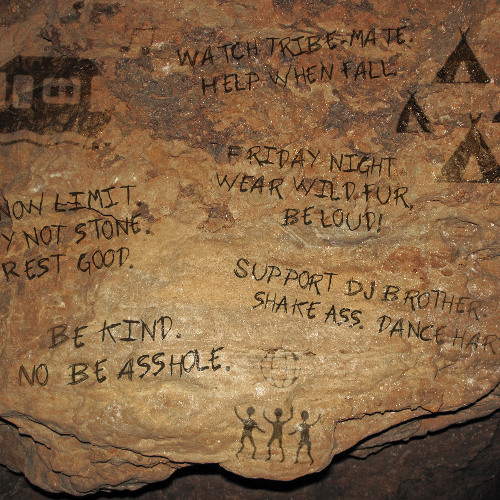 WATCH TRIBE-MATE.
HELP WHEN FALL
FRIDAY NIGHT
WEAR WILD FUR,
BE LOUD!
NOW LIMIT.
Y NOT STONE.
REST GOOD.
SUPPORT DJ BROTHER.
SHAKE ASS. DANCE HAR
BE KIND.
NO BE ASSHOLE.